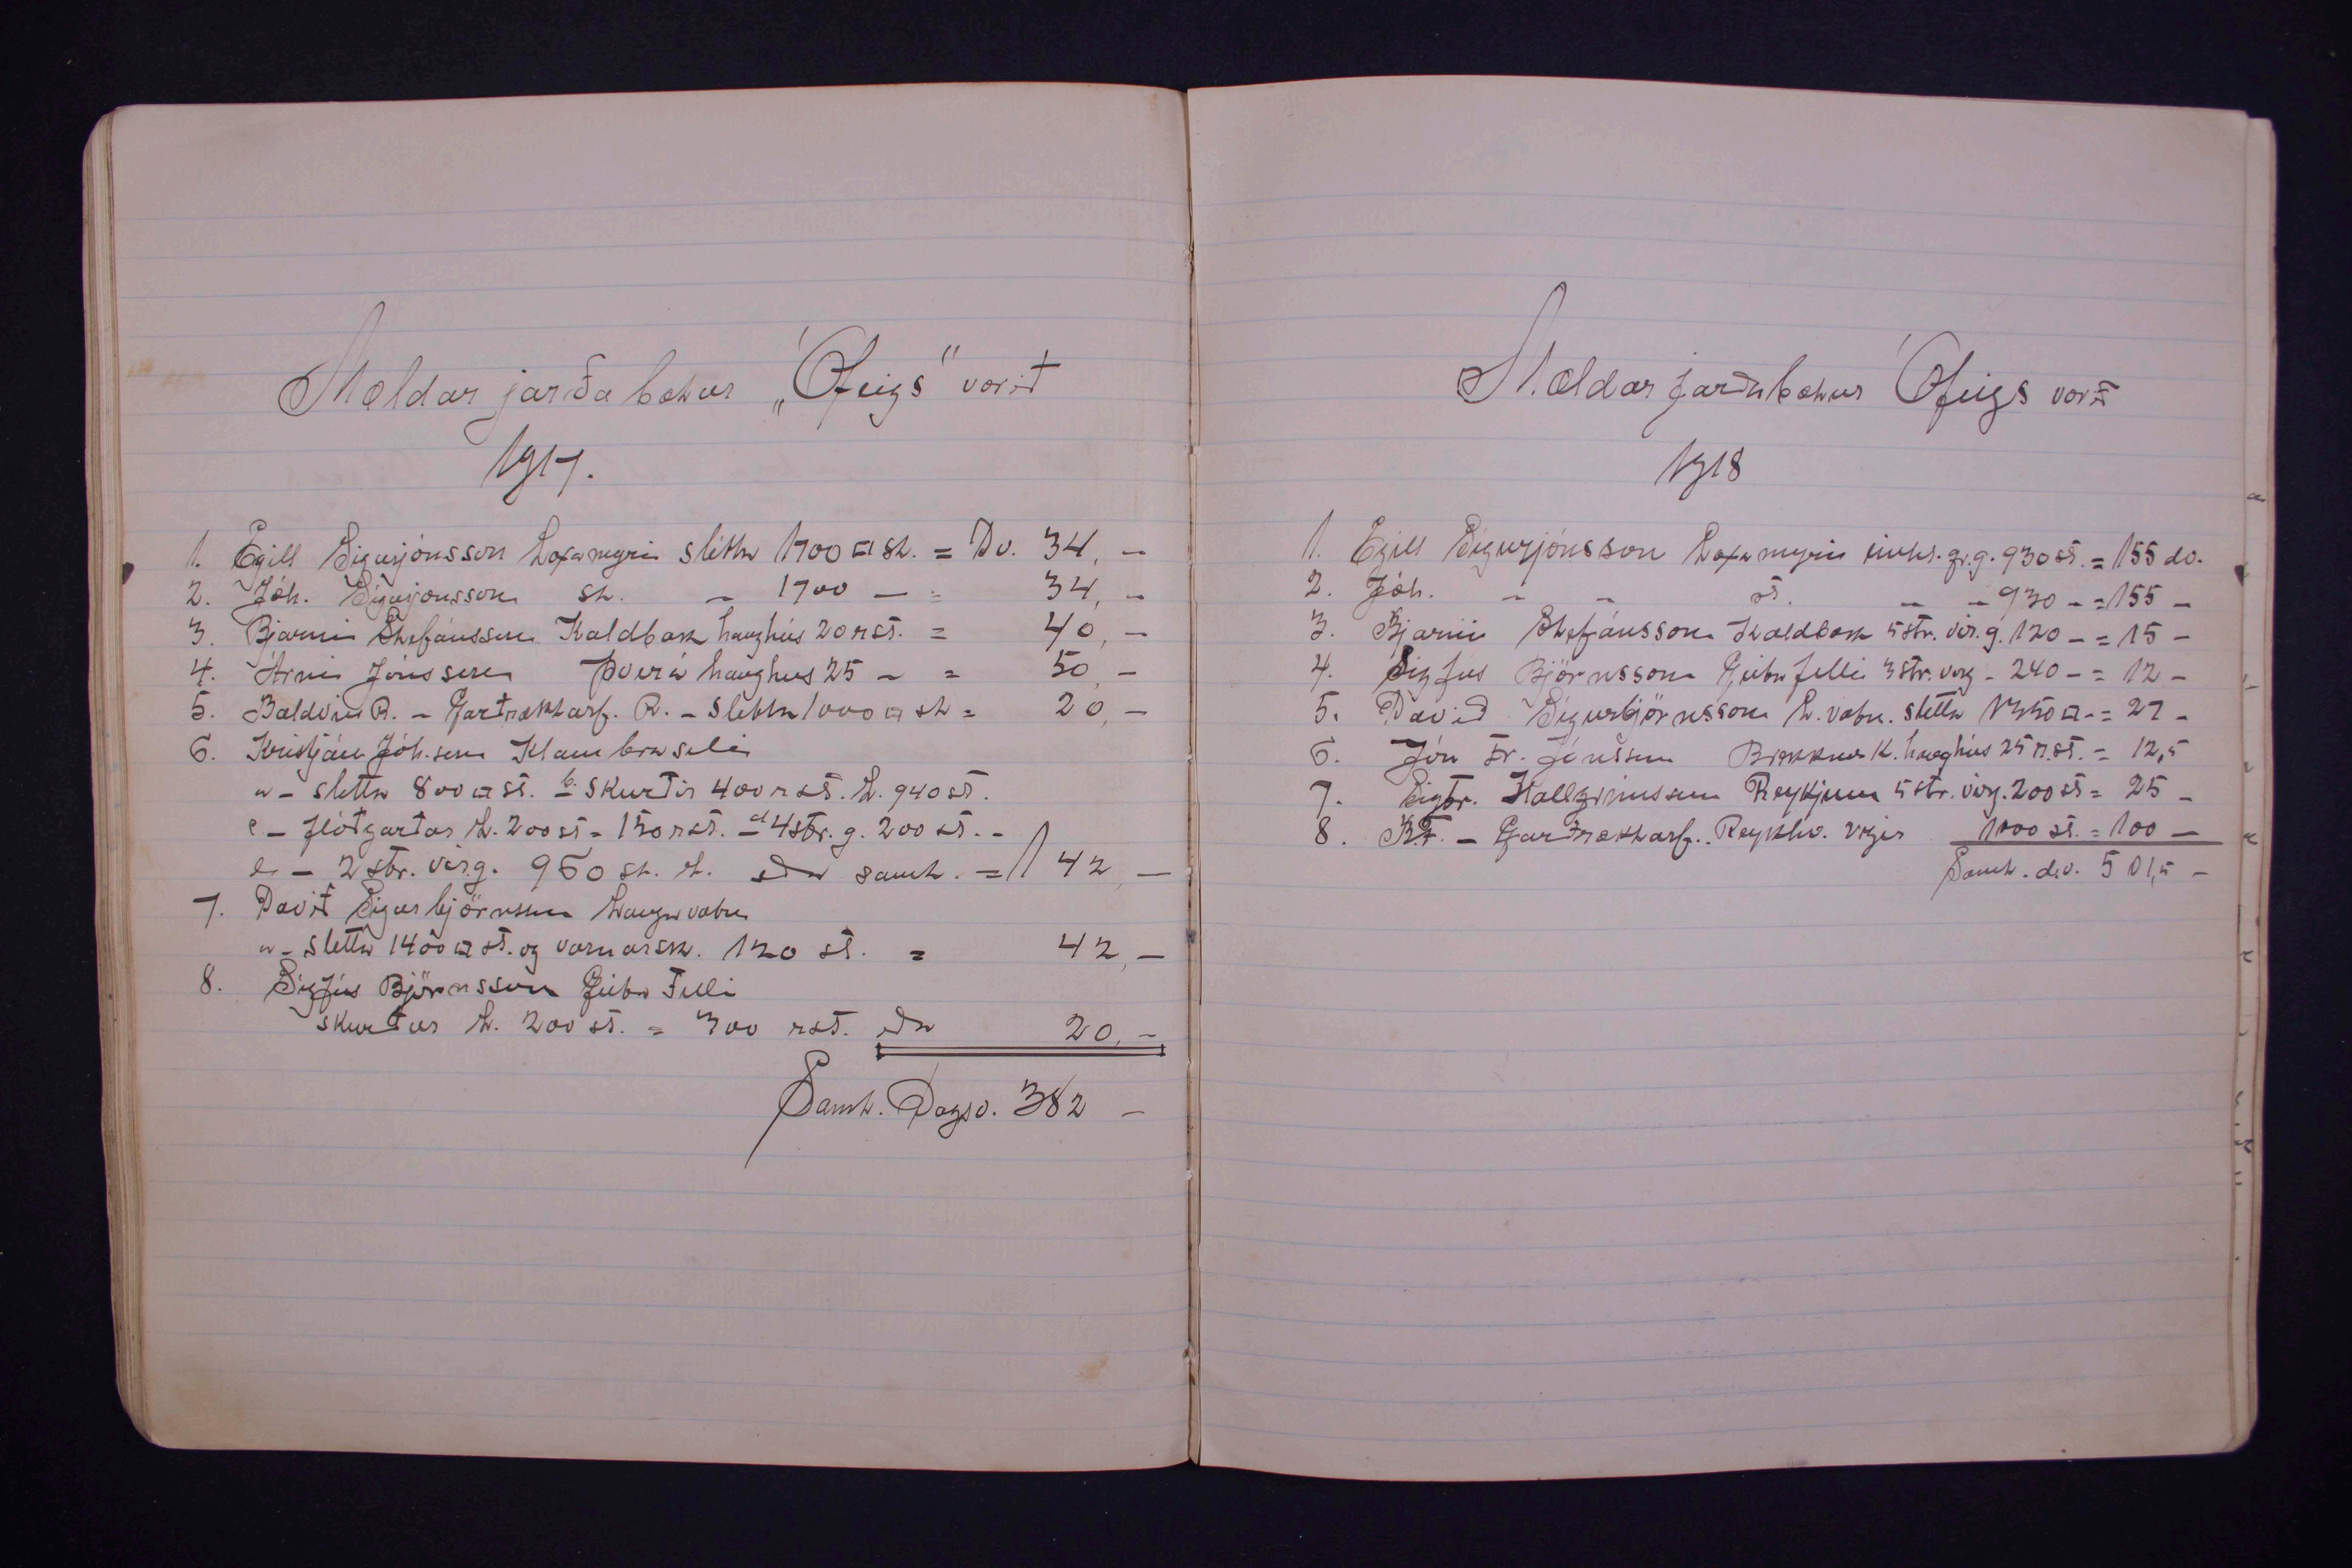 Mældar jarðabætur „Ófeigs" vorið
1917.
1. Egill Sigurjónsson Laxamýri slétta 1700 □ st. = Dv. 34, -
2. Jóh. Sigurjónsson st. - 1700 - = 34, -
3. Bjarni Stefánsson Kaldbak haughús 20 rst. = 40, -
4. Árni Jónsson Þverá haughús 25 - = 50, -
5. Baldvin R. - Garðræktarf. R. - Slétta 1000 □ st = 20, -
6. Kristján Jóh.son Klambraseli
a - slétta 800 □ st. b. skurðir 400 rst. L. 940 st.
c - flóðgarðar L. 200 st = 150 rst. - d 4 str. g. 200 st. -
e - 2 str. vírg. 960 st. L. eða samt. = 142, -
7. Davíð Sigurbjörnsson Langavatn
a - slétta 1400 □ st. og varnarsk. 120 st. = 42, -
8. Sigfús Björnsson Geitafelli
skurður L. 200 st. = 300 rst. eða 20, -
Samt. Dagsv. 382 -
Mældar jarðabætur Ófeigs vorið
1918
1. Egill Sigurjónsson Laxamýri gr.g. 930 st. = 155 dv.
2. Jóh. - - st. - - 930 - = 155 -
3. Bjarni Stefánsson Kaldbak 5 str. vír.g. 120 - = 15 -
4. Sigfús Björnsson Geitafelli 3 str. vírg - 240 - = 12 -
5. Davíð Sigurbjörnsson L.vatn. slétta 1350 □ - = 27 -
6. Jón Fr. Jónsson Brekknak. haughús 25 r.st. = 12,5
7. Sigtr. Hallgrímsson Reykjum 5 str. vírg. 200 st = 25 -
8. K.Þ. - Garðræktarf. Reykhv. vegir 1000 st. = 100 -
Samt. dv. 501,5 -